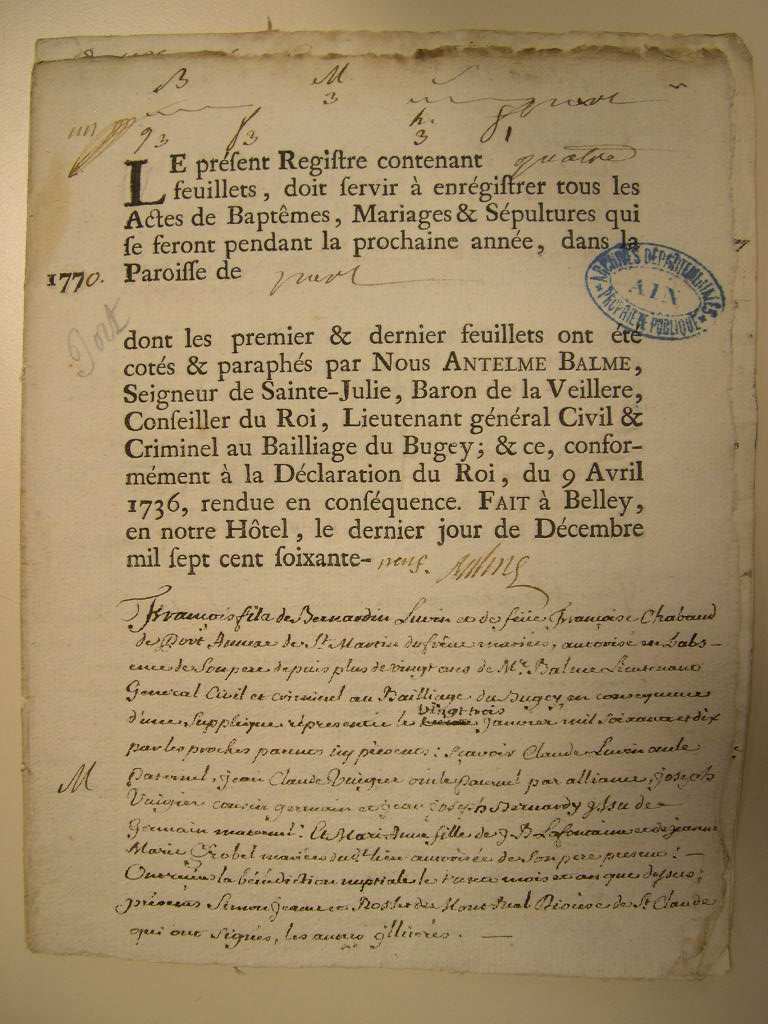 B M
3
93 f3 3 81
LE préſent Regiſtre contenant quatre
feuillets, doit ſervir à enrégiſtrer tous les
Actes de Baptêmes, Mariages & Sépultures qui
ſe feront pendant la prochaine année, dans la
1770. Paroiſſe de port
ARCHIVES DÉPARTEMENTALES
AIN
PROPRIÉTÉ PUBLIQUE
Port
dont les premier & dernier feuillets ont été
cotés & paraphés par Nous ANTELME BALME,
Seigneur de Sainte-Julie, Baron de la Veillere,
Conſeiller du Roi, Lieutenant général Civil &
Criminel au Bailliage du Bugey; & ce, confor-
mément à la Déclaration du Roi, du 9 Avril
1736, rendue en conſéquence. FAIT à Belley,
en notre Hôtel, le dernier jour de Décembre
mil ſept cent ſoixante-neuf. Balme
François fils de Bernardin Luvin et de feüe Françoise Chabaud
de Port Annexe de St Martin du frêne mariés, autorisé en Labs-
ence de Son pere depuis plus de vingt ans de Mr. Balme Lieutenant
General Civil et criminel au Bailliage du Bugey en consequence
d'une Supplique répresentée le vingt trois janvier mil soixante et dix
par les proches parents icy présents: Sçavoir Claude Luvin oncle
M paternel, jean Claude Vuigier oncle paternel par alliance, joseph
Vuigier cousin germain et jean joseph Bernardy issu de
Germain maternel: Et Marianne fille de J B Lafontaine et de jeanne
Marie Crobet mariés du lieu autorisée de son pere present: -
Ont reçu la bénédiction nuptiale le trente mois et an que dessus;
présents Simon jeanne et de St Claude
qui ont signés, les autres illitérés. -